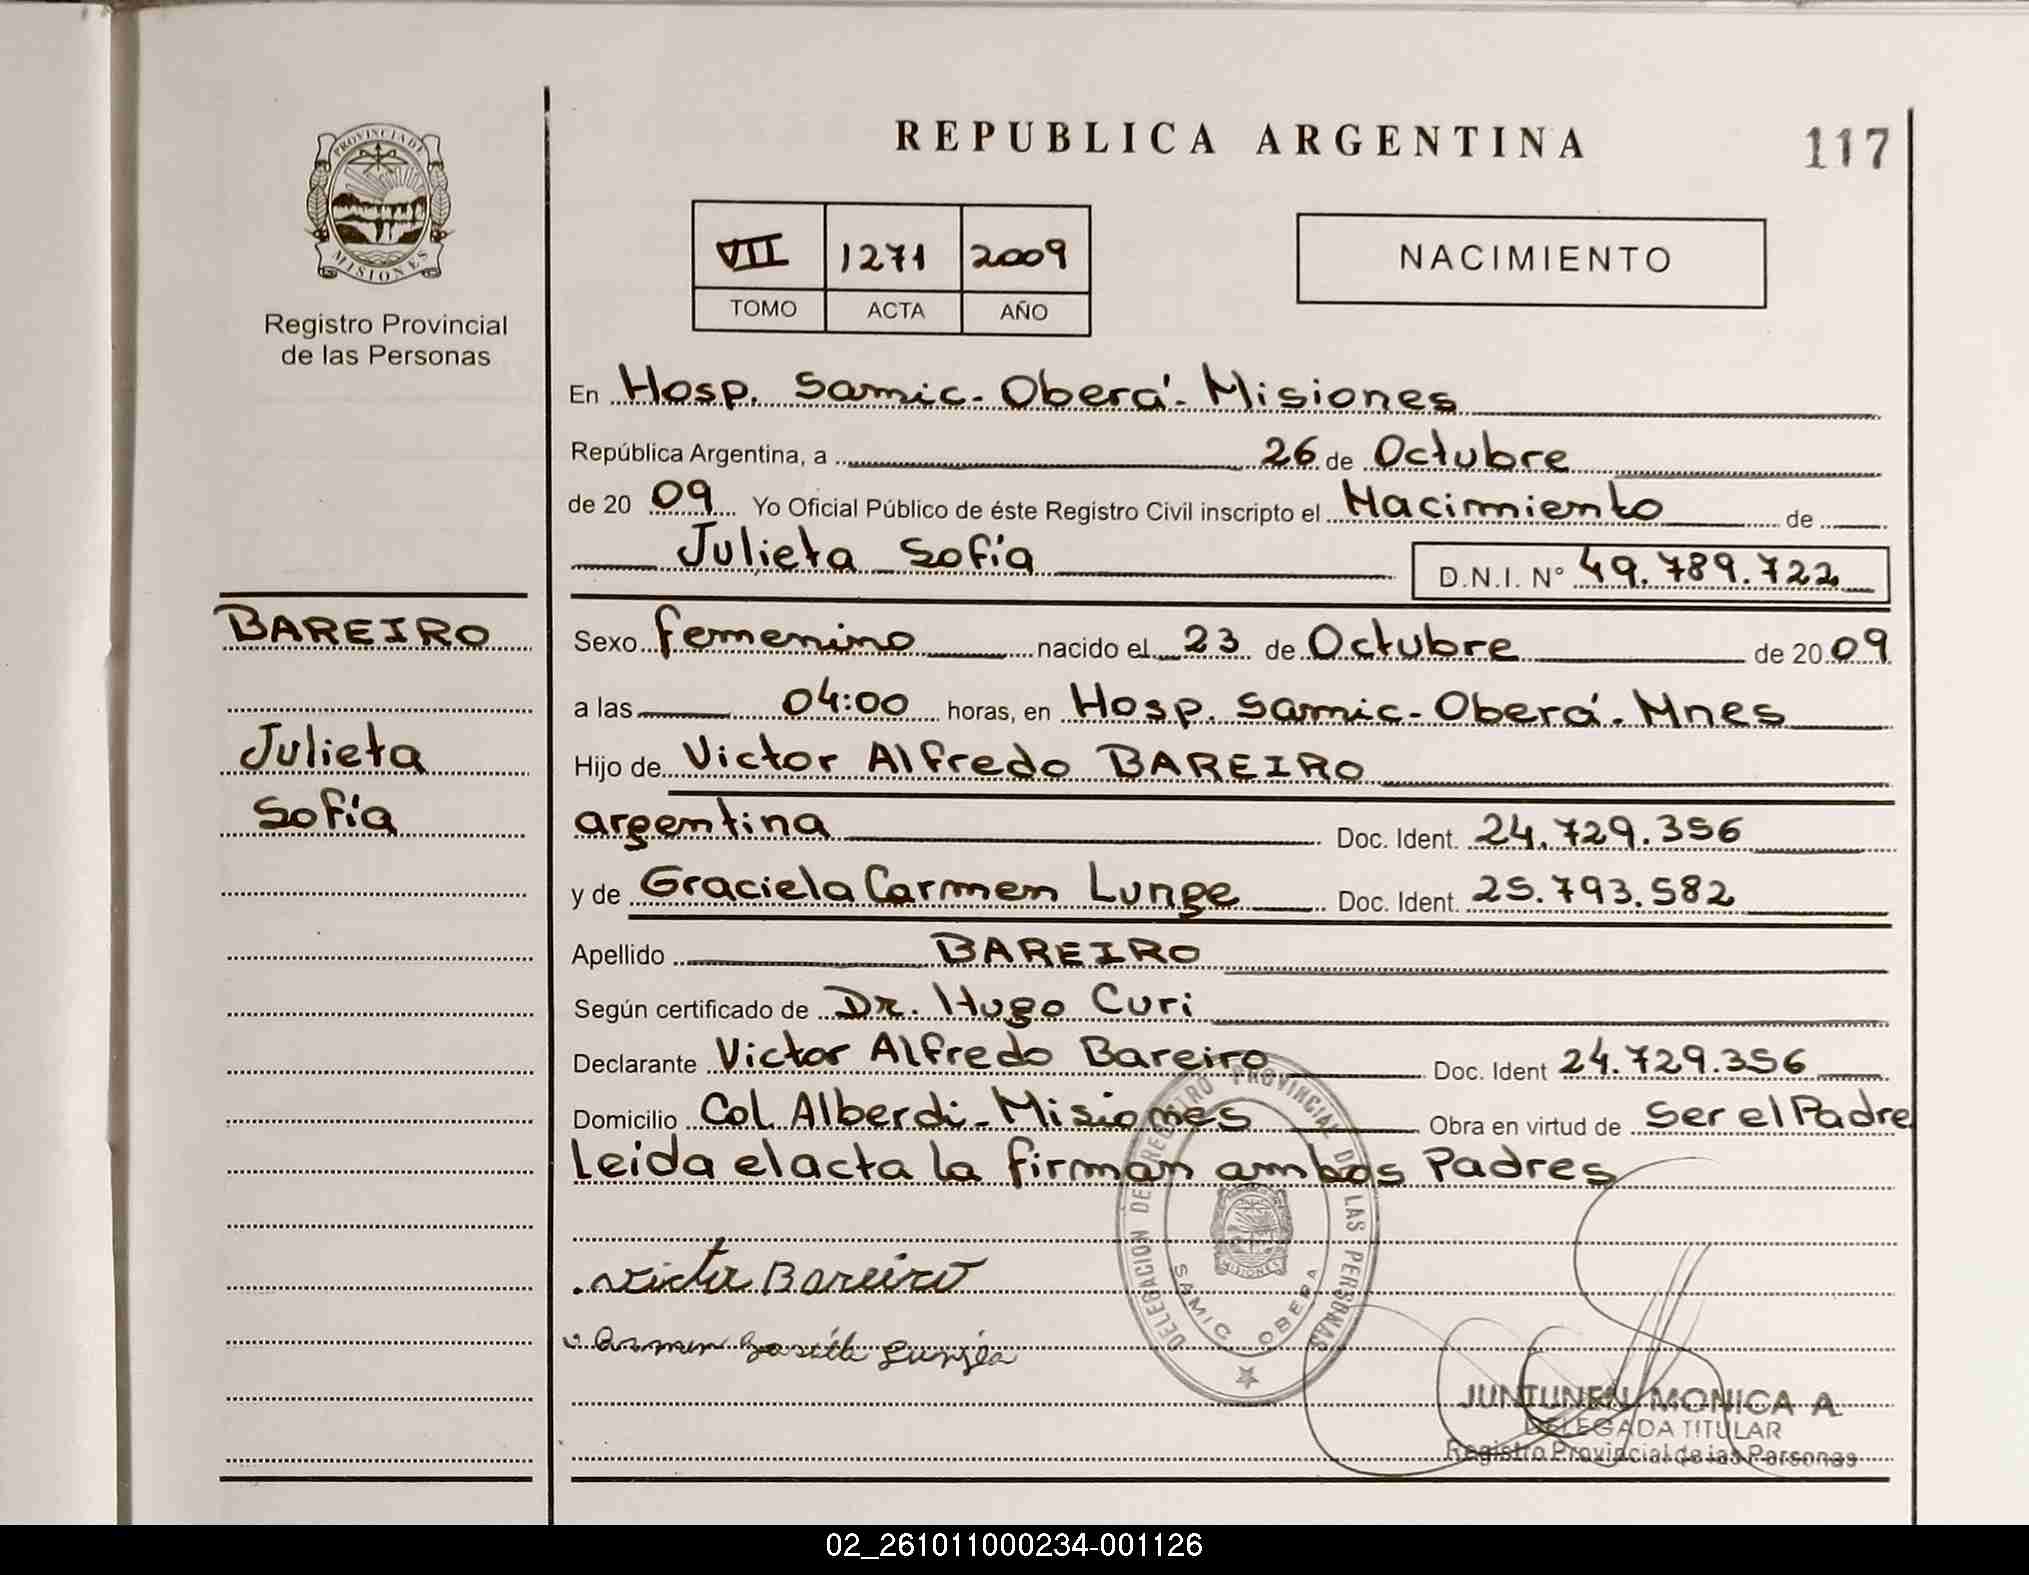 REPUBLICA ARGENTINA
117
PROVINCIA DE
MISIONES
Registro Provincial
de las Personas
VII 1271 2009
TOMO ACTA AÑO
NACIMIENTO
En Hosp. Samic - Oberá - Misiones
República Argentina, a 26 de Octubre
de 2009 Yo Oficial Público de éste Registro Civil inscripto el Nacimiento de
Julieta Sofía D.N.I. N° 49.789.722
BAREIRO
Julieta
Sofía
Sexo femenino nacido el 23 de Octubre de 2009
a las 04:00 horas, en Hosp. Samic - Oberá - Mnes
Hijo de Victor Alfredo BAREIRO
argentina Doc. Ident. 24.729.356
y de Graciela Carmen Lunge Doc. Ident. 25.793.582
Apellido BAREIRO
Según certificado de Dr. Hugo Curi
Declarante Victor Alfredo Bareiro Doc. Ident 24.729.356
Domicilio Col. Alberdi - Misiones Obra en virtud de Ser el Padre
Leida el acta la firman ambos Padres
DELEGACION DE REGISTRO PROVINCIAL DE LAS PERSONAS
MISIONES
SAMIC OBERA
Victor Bareiro
JUNTUNEN MONICA A
DELEGADA TITULAR
Registro Provincial de las Personas
02_261011000234-001126